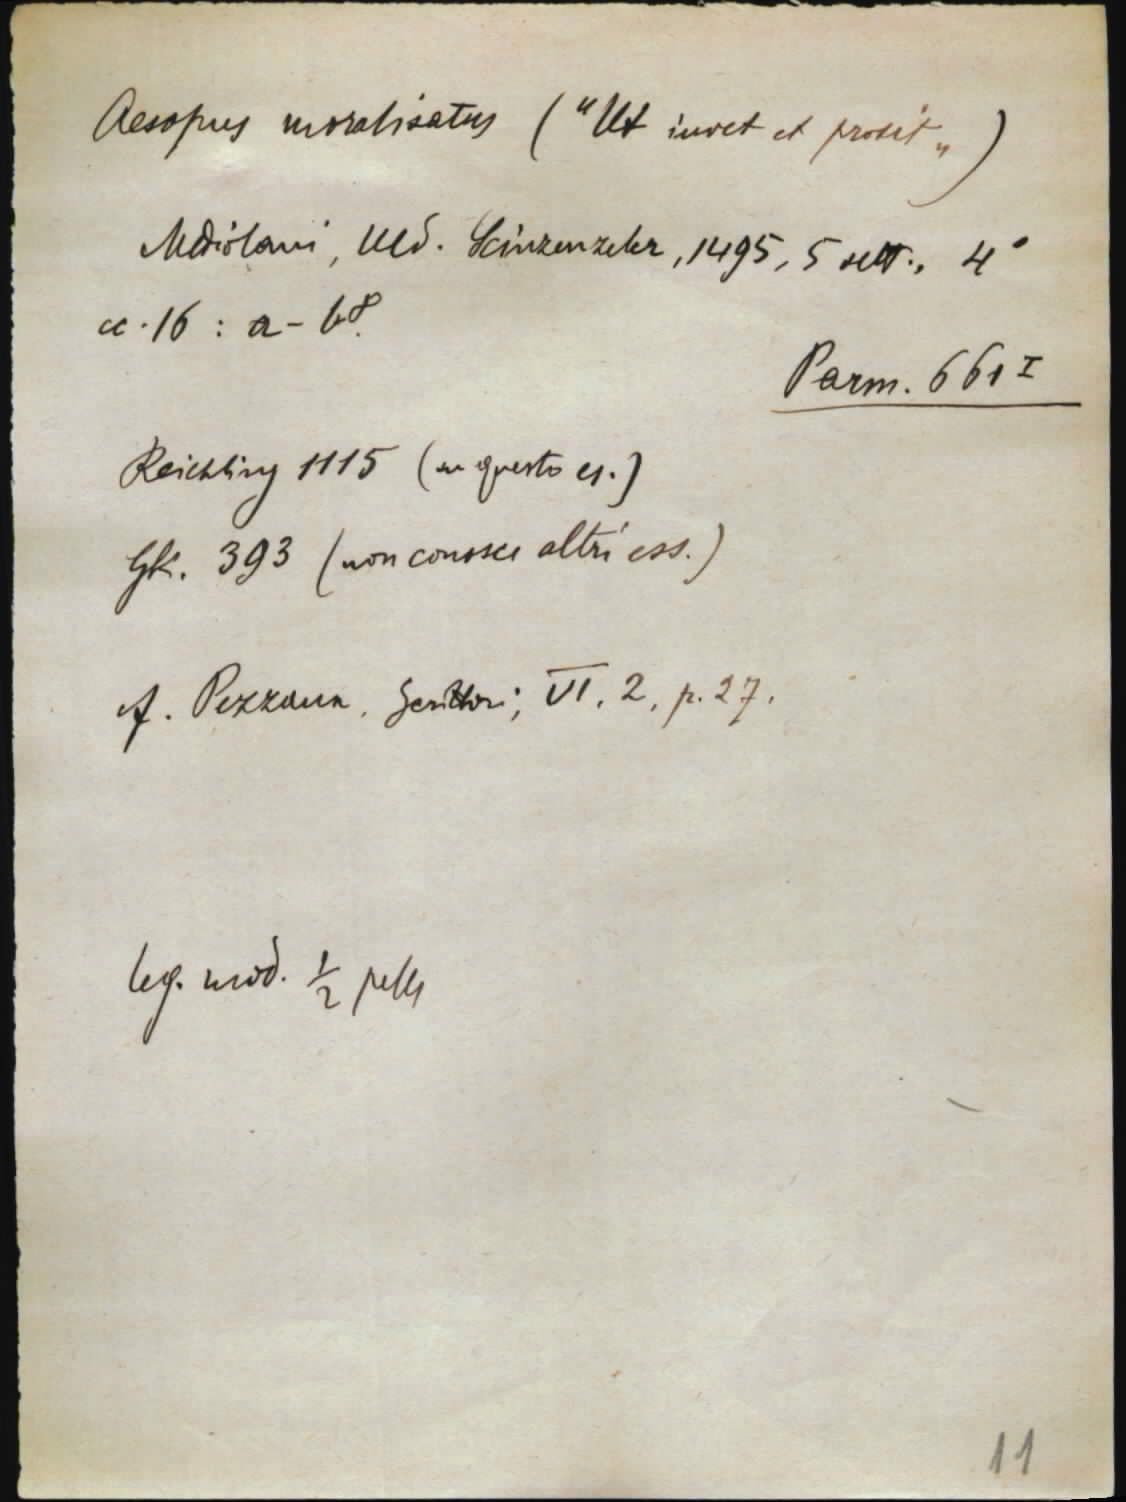 Aesopus moralisatus ("Ut iuvet et prosit„)
Mediolani, Uld. Scinzenzeler, 1495, 5 sett., 4°
cc. 16 : a-b⁸.
Parm. 661 I
Reichling 1115 (su questo es.)
GK. 393 (non conosce altri ess.)
cf. Pezzana, Scrittori, VI, 2, p. 27.
leg. mod. ½ pelle
11